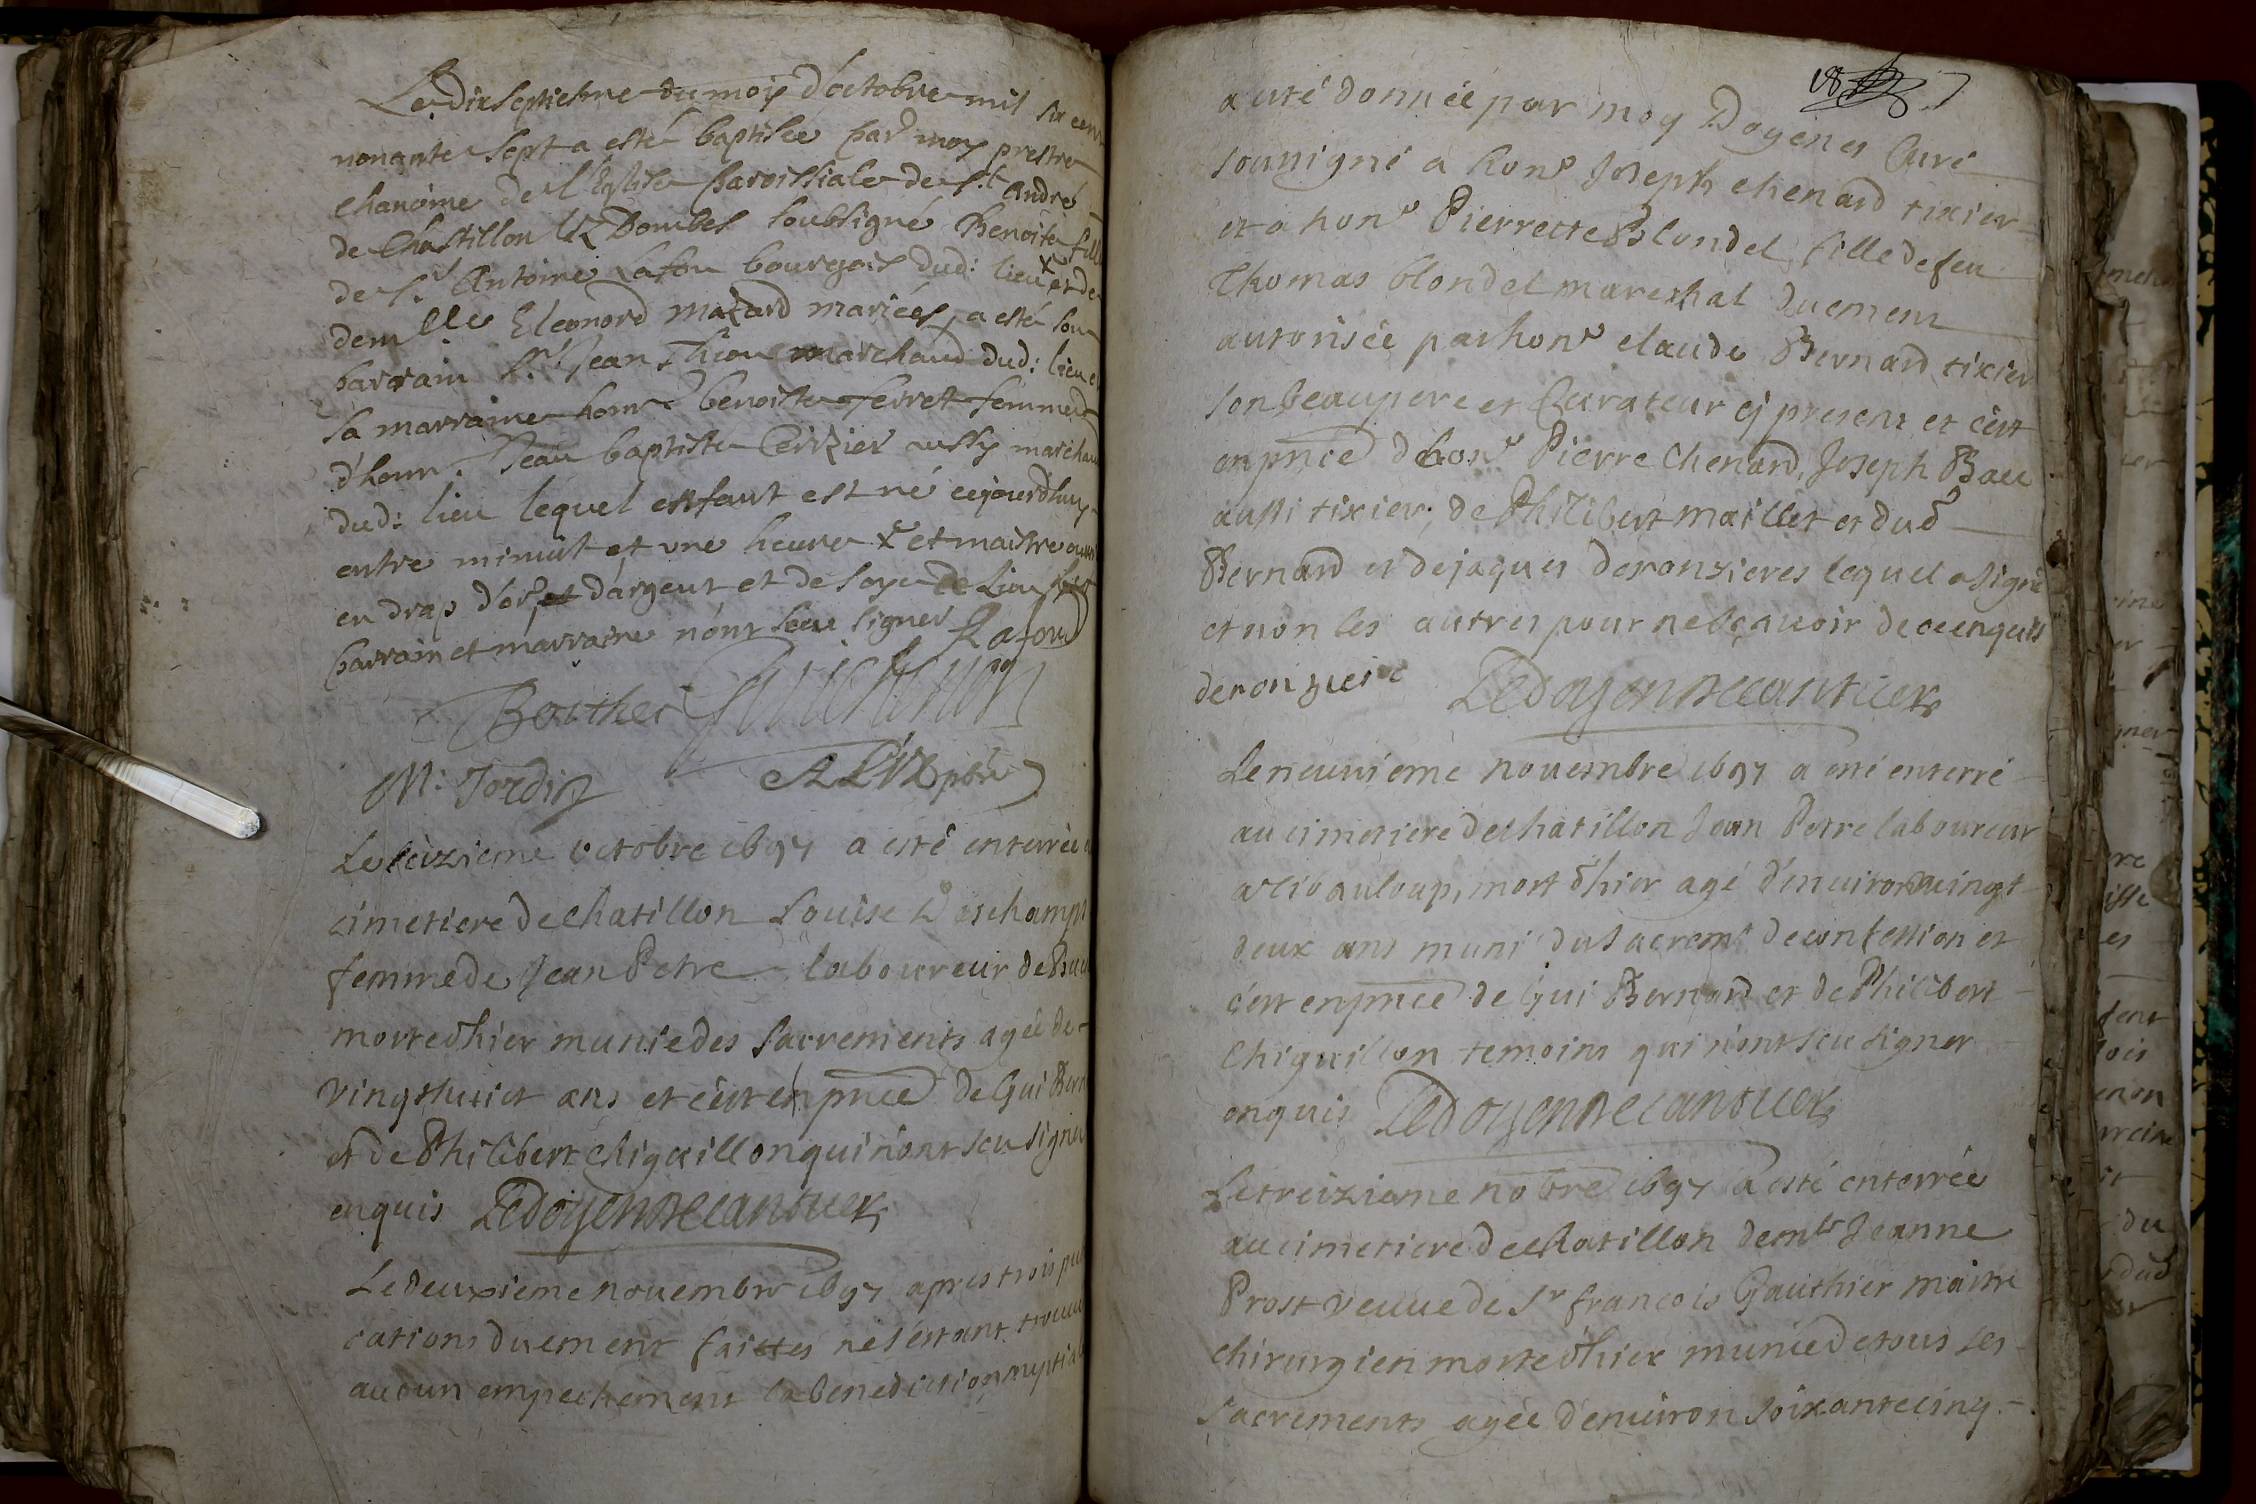 Le dixseptiesme du mois d'octobre mil six cent
nonante sept a esté baptisée par moy prestre
chanoine de l'Eglise paroissiale de St André
de Chastillon lez Dombes soubsigné Benoiste fille
de Sr Antoine Lafon bourgois dud: lieu x et de
demlle Eleonord mazard mariés, a esté son
parrain Sr Jean Thion marchand dud: lieu et
sa marraine honn. benoiste ferret femme
d'honn. Jean baptiste Cerizier aussy marchand
dud: lieu lequel enfant est né cejourd'huy
entre minuit et une heure x et maistre ouvr
en drap d'or et d'argent et de soye de Lion
parrain et marraine n'ont sceu signer Lafon
Bouthes
M: Jordin ALIX pbre
Le seizieme octobre 1697 a esté enterrée
cimetiere de chatillon Louise Deschamps
femme de Jean Petre laboureur de
morte d'hier munie des sacrements agée de
vingthuict ans et c'est en pnce de Gui Bern
et de Philibert chiguillon qui n'ont sceu signer
enquis Ledoyen
Le deuxieme novembre 1697 apres trois pu
cations duement faittes ne s'estant trouvé
aucun empechement la benediction nuptiale
a eté donnée par moy Doyen et Curé
soussigné a honb Joseph chenard tixier
et a honb Pierrette Blondel fille de feu
Thomas blondel mareschal duement
autorisée par honb claude Bernard tixier
son beaupere et Curateur cy present et c'est
en pnce d honb Pierre Chenard, Joseph
aussi tixier, de Philibert maillet et dud
Bernard et de jaques deronzieres lequel a signé
et non les autres pour ne sçavoir de ce enquis
deronziere Ledoyen
Le neuvieme novembre 1697 a eté enterré
au cimetiere de chatillon Jean Petre laboureur
mort d'hier agé d'environ vingt
deux ans muni du sacremt de confession et
c'est en pnce de Gui Bernard et de Philibert
Chiguillon temoins qui n'ont sceu signer
enquis Ledoyen
Le treizieme nobre 1697 a esté enterrée
au cimetiere de chatillon demlle Jeanne
Prost veuve de Sr francois Gauthier maitre
chirurgien morte d'hier munie de tous ses
sacrements agée d'environ soixante cinq